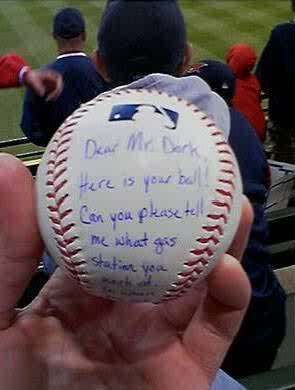 Dear Mr. Dork,
Here is your ball!
Can you please tell
me what gas
station you
work at.